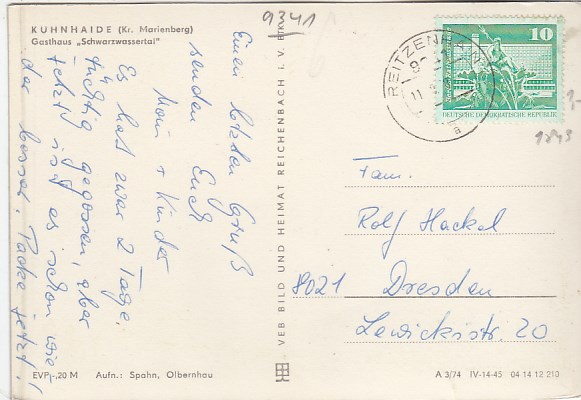 9341
KUHNHAIDE (Kr. Marienberg)
Gasthaus „Schwarzwassertal"
Einen lieben Gruß
senden Euch
Moni + Kinder
Es hat zwar 2 Tage
tüchtig gegossen, aber
jetzt ist es schon wie-
der besser.
jetzt!
VEB BILD UND HEIMAT REICHENBACH I. V.
REITZENHAIN
10
DEUTSCHE DEMOKRATISCHE REPUBLIK
1843
Fam.
Rolf Hackel
8021 Dresden
Lewickistr. 20
EVP -,20 M Aufn.: Spahn, Olbernhau
A 3/74 IV-14-45 04 14 12 210